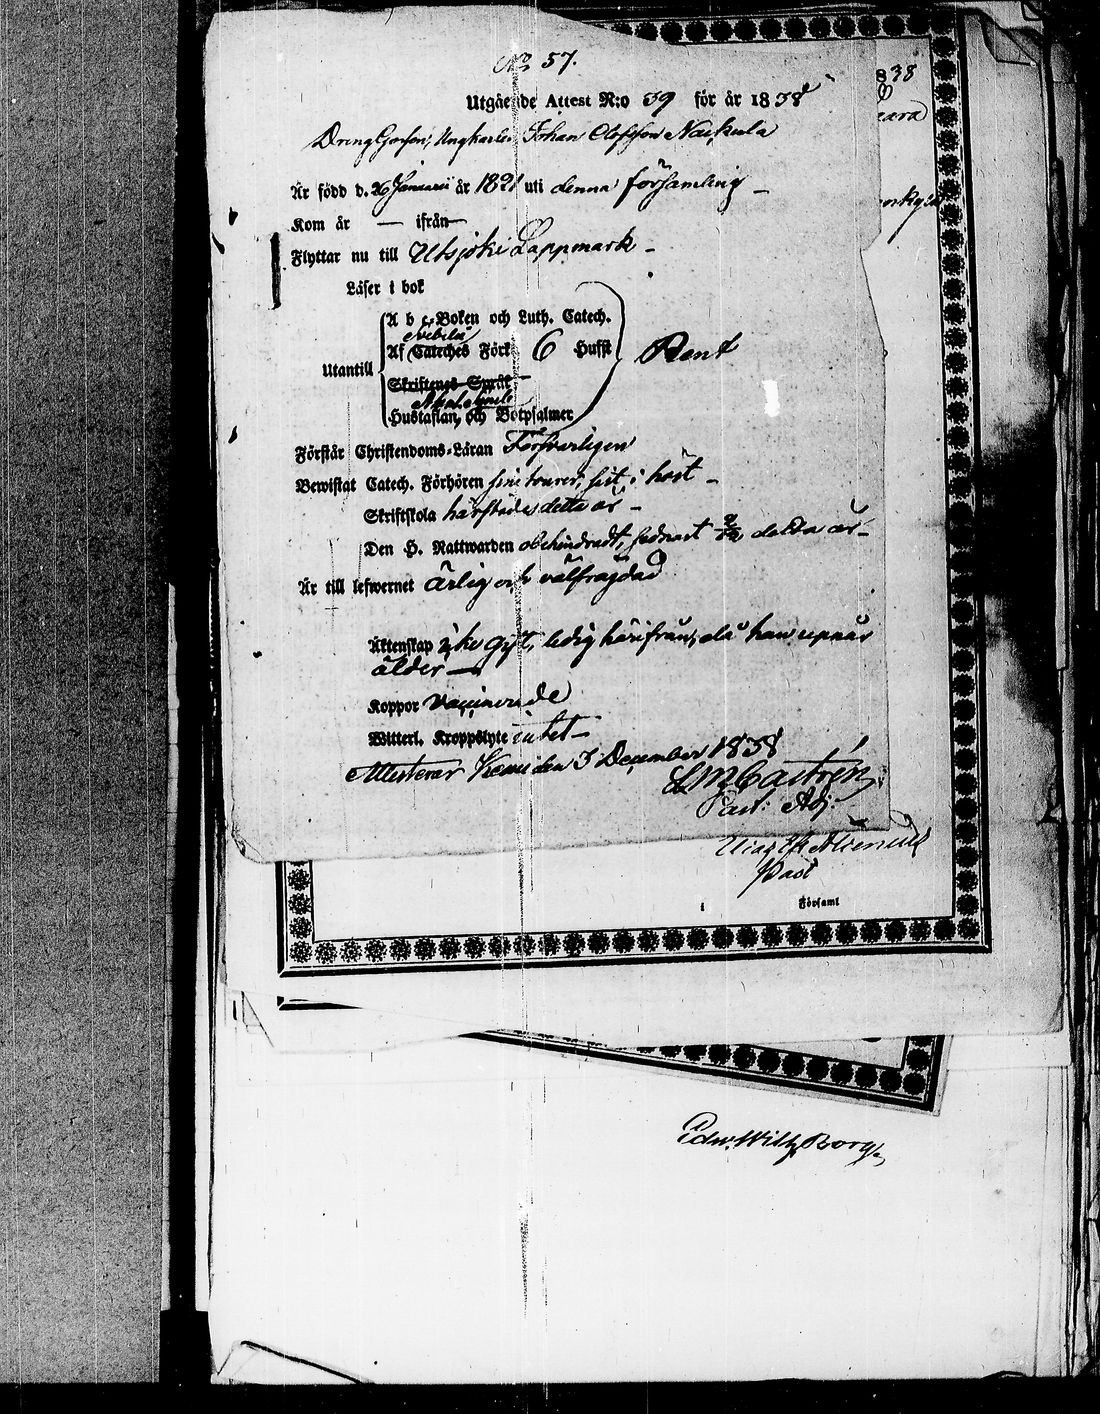 No 57.
Utgående Attest N:o 39 för år 1838
838
Drenggossen, Ungkarlen Johan Olofsson Naskula
Är född d. 26 Januarii år 1821 uti denna församling –
Kom år — ifrån —
Flyttar nu till Utsjoki Lappmark –
Läser i bok
A b c Boken och Luth. Catech.
Svebilii
Af Cateches Förkl. 6 Hufst
Rent
Utantill
Skriftenes Språk
Hustaflan, och Botpsalmer
Förstår Christendoms-Läran Försvarligen
Bewistat Catech. Förhören sine tourer, sist i höst –
Skriftskola härstädes detta år –
Den H. Nattwarden obehindradt, sednast detta år –
Är till lefwernet ärlig och välfrägdad
Äktenskap icke gift, ledig härifrån, då han uppnår
ålder —
Koppor vaccinerade
Witterl. Kroppslyte intet –
Attesterar Kemi den 3 December 1838
L M Castrén
Past: Adj:
Past
i Församl
Edw. Wilh. Borg